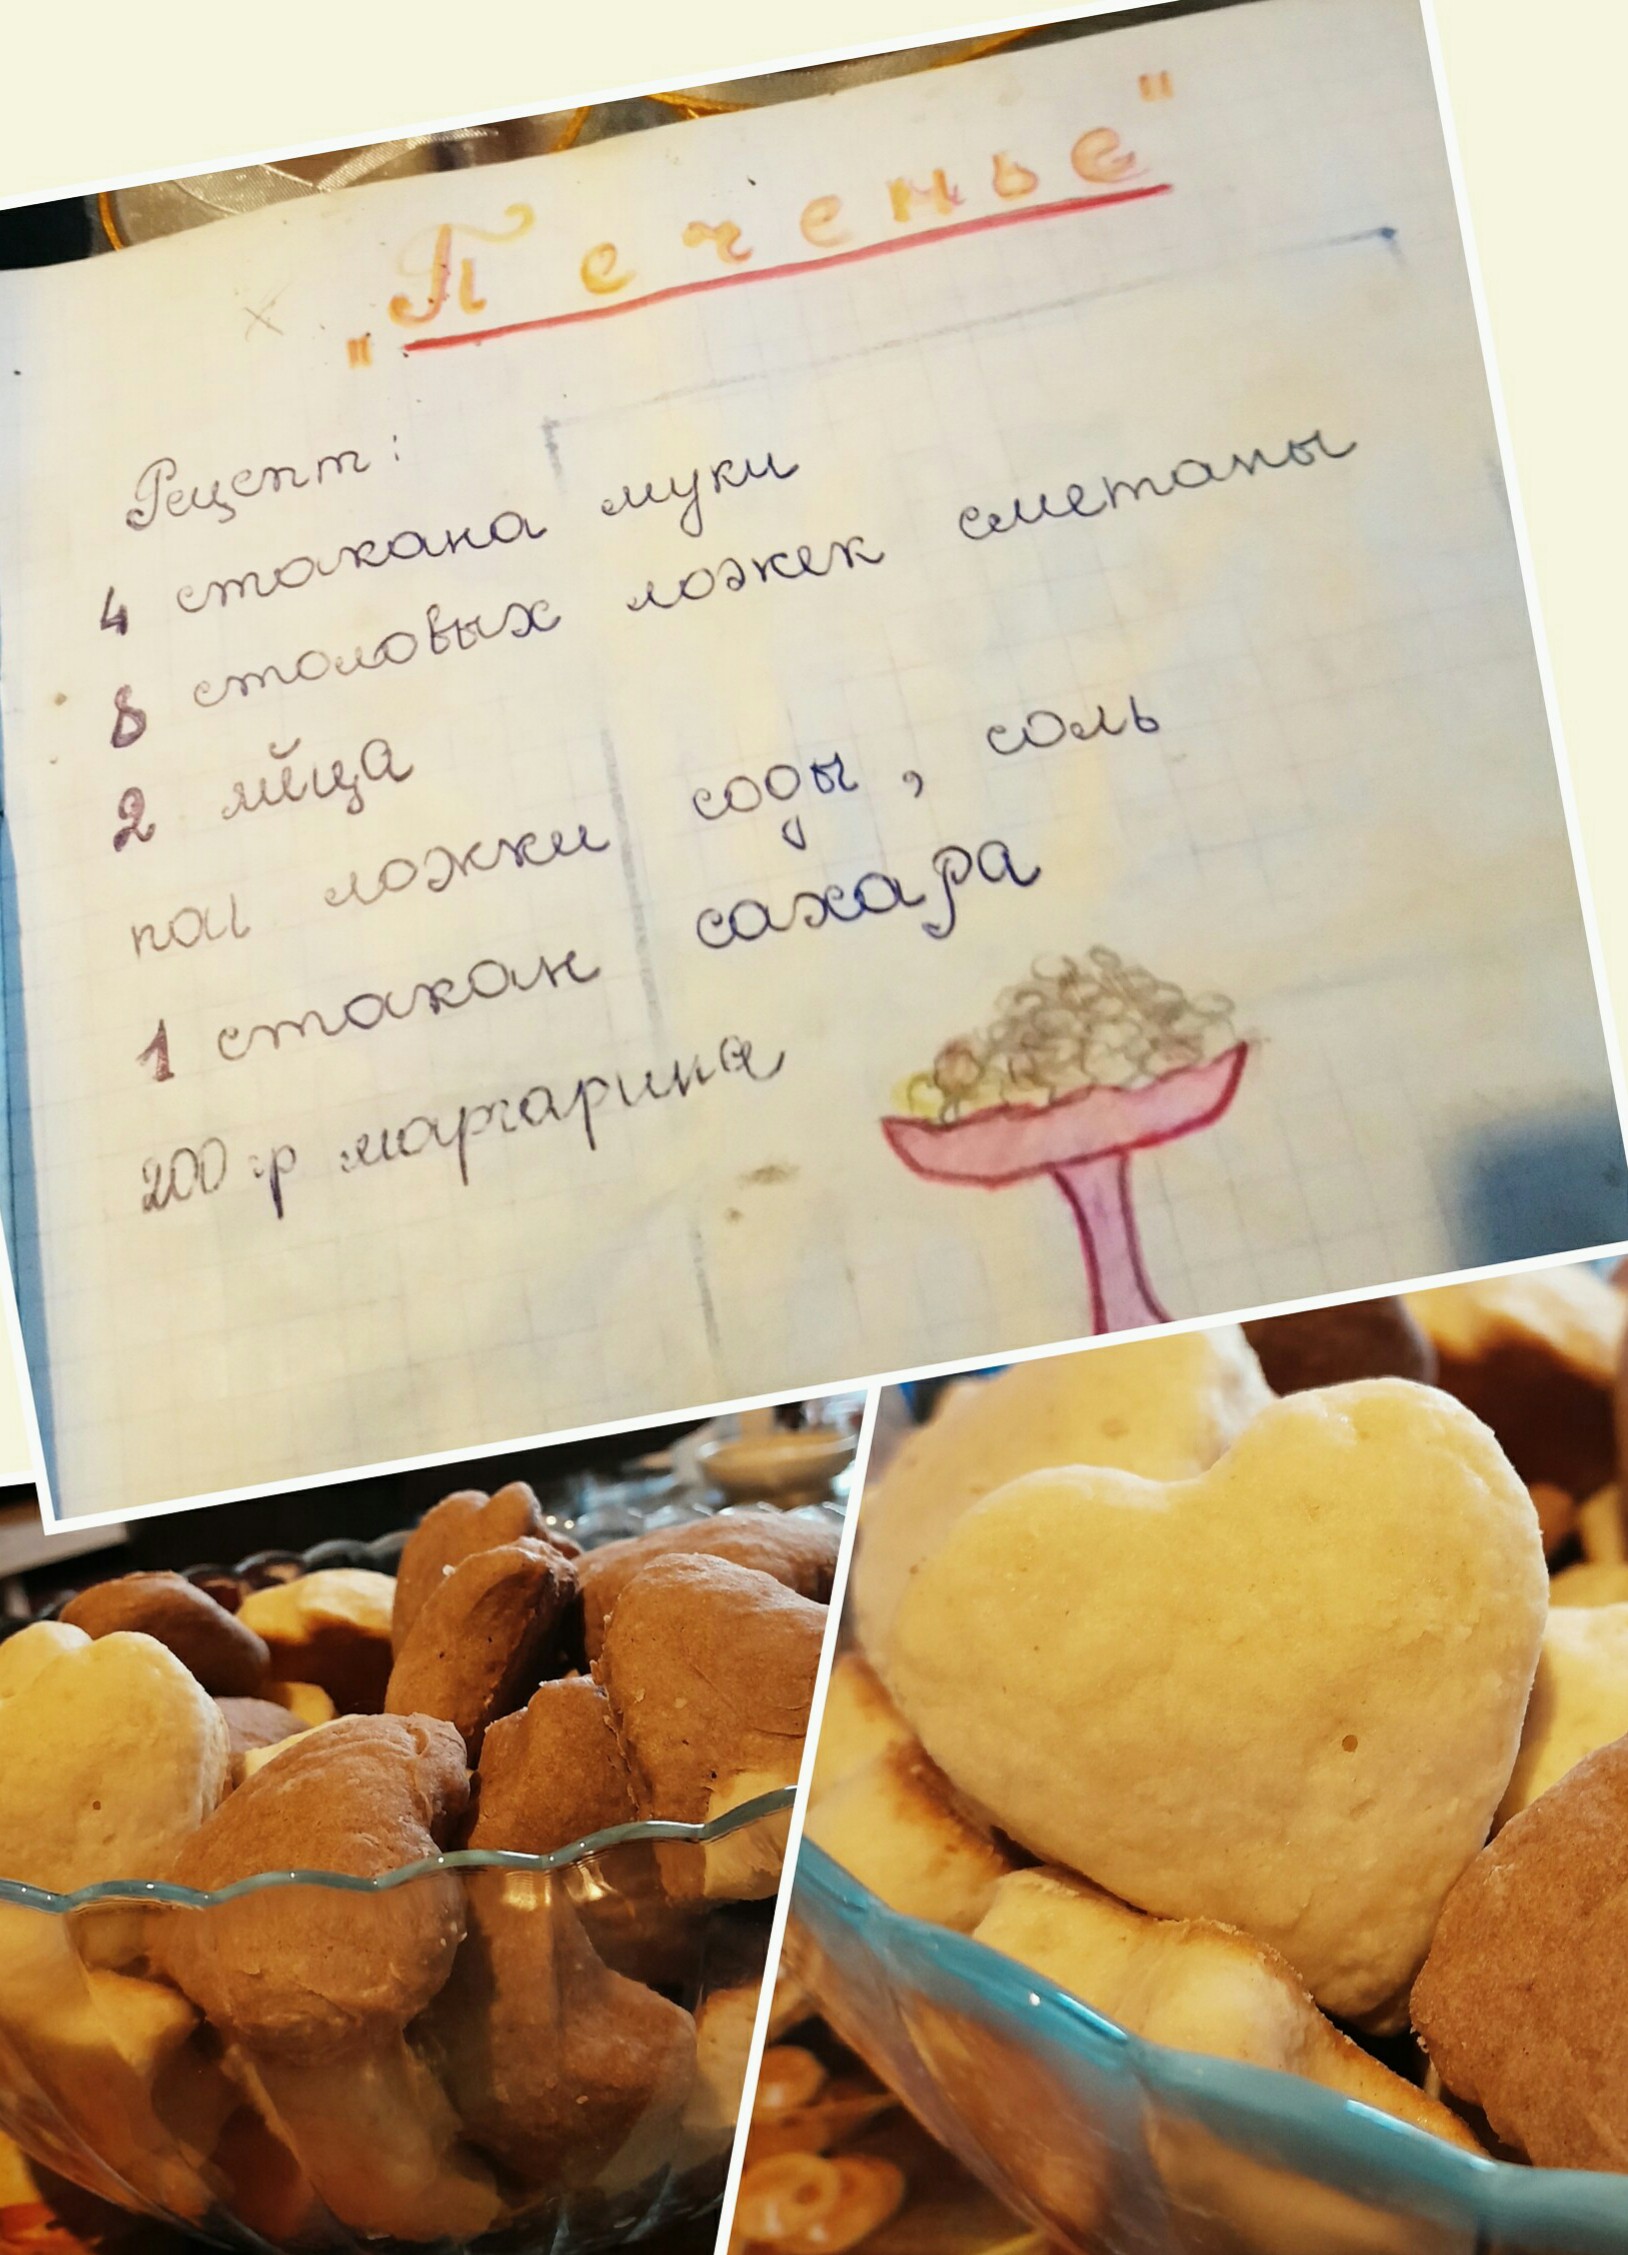 "Печенье"
Рецепт:
4 стакана муки
8 столовых ложек сметаны
2 яйца
пол ложки соды, соль
1 стакан сахара
200 гр маргарина